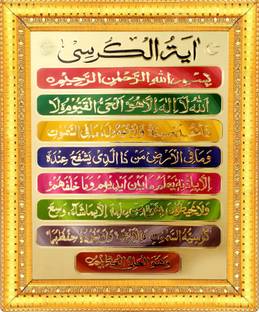 اية الكرسى
بسم الله الرحمن الرحيم
الله لا اله الا هو الحى القيوم لا
تأخذه سنة ولا نوم له ما فى السموت
وما فى الارض من ذا الذى يشفع عنده
الا باذنه يعلم ما بين ايديهم وما خلفهم
ولا يحيطون بشىء من علمه الا بما شاء وسع
كرسيه السموت والارض ولا يؤده حفظهما
وهو العلى العظيم